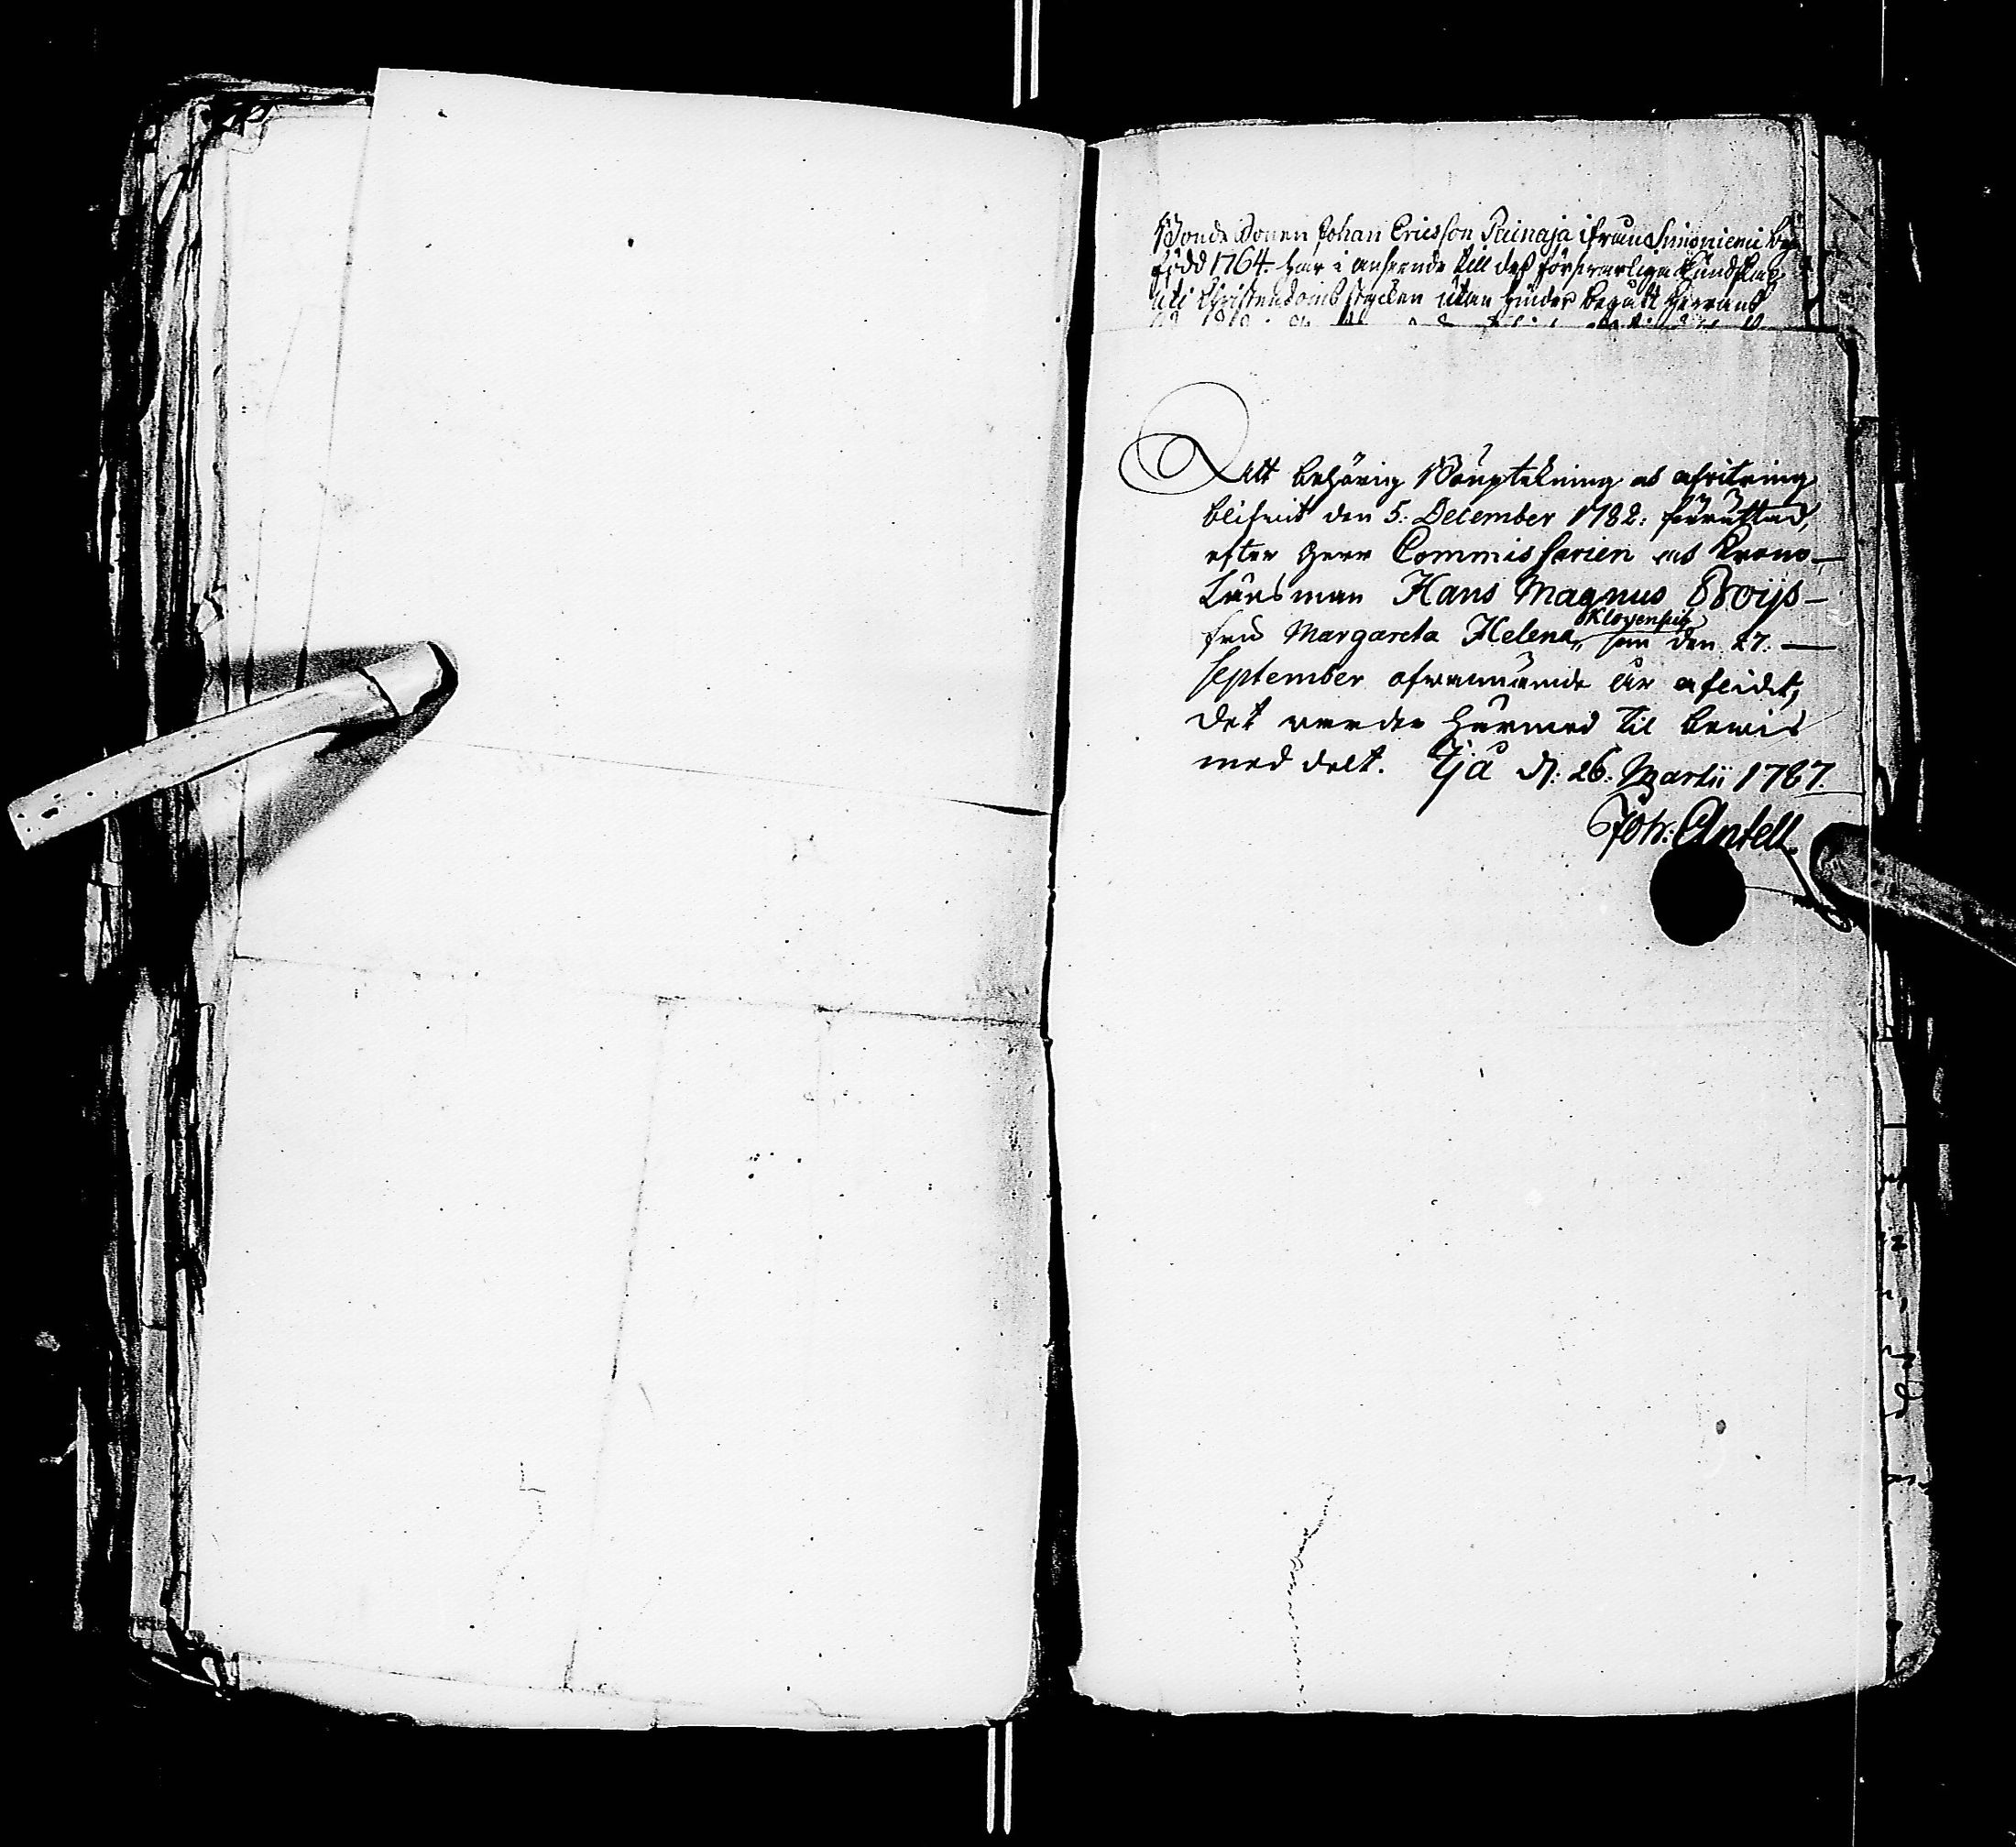 Bonde Sonen Johan Ericsson Painaja ifrån Simoniemi by
född 1764. har i anseende till dess försvarliga kundskap
uti Christendoms stycken utan hinder begått Herrans
Att behörig Bouptekning och afvitring
blifvit den 5. December 1782. förrättad,
efter Herr Commissarien och Krono-
Länsman Hans Magnus Boijs-
fru Margareta Helena Klovensich, som den 27.
September ofvannämde år afledit,
det varder härmed til bewis
meddelt. Ijå d. 26. Martii 1787.
Joh: Antell.